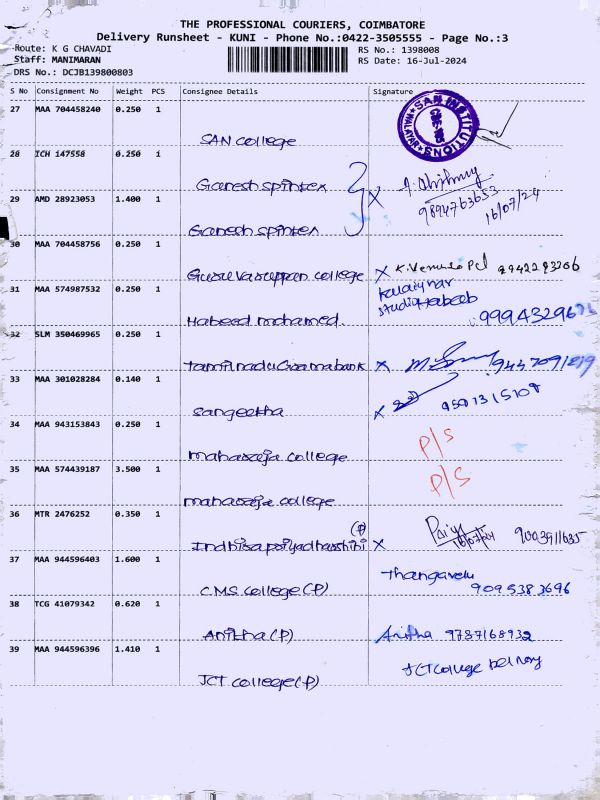 THE PROFESSIONAL COURIERS, COIMBATORE
Delivery Runsheet - KUNI - Phone No.:0422-3505555 - Page No.:3
Route: K G CHAVADI
RS No.: 1398008
Staff: MANIMARAN
RS Date: 16-Jul-2024
DRS No.: DCJB139800803
S No Consignment No Weight PCS Consignee Details Signature
27 MAA 704458240 0.250 1
SAN INSTITUTIONS
SAN college
28 ICH 147558 0.250 1
Ganesh spintex
29 AMD 28923053 1.400 1
9894763653
16/07/24
Ganesh spintex
30 MAA 704458756 0.250 1
Guruvasuppan college x K. 9942293266
31 MAA 574987532 0.250 1
Kalaignar
studio Habeeb
Habeed mohamed.
32 SLM 350469965 0.250 1
Tamilnadu Gramabank x
33 MAA 301028284 0.140 1
sangeetha x
34 MAA 943153843 0.250 1
P/S
maharaja college
35 MAA 574439187 3.500 1
P/S
maharaja college
36 MTR 2476252 0.350 1
(P)
Indhirapriyadharshini x 16/07/24
37 MAA 944596403 1.600 1
Thangavelu
CMS college (P) 909 538 3696
38 TCG 41079342 0.620 1
Anitha (P) Anitha 9787168932
39 MAA 944596396 1.410 1
JCT College
JCT college (P)